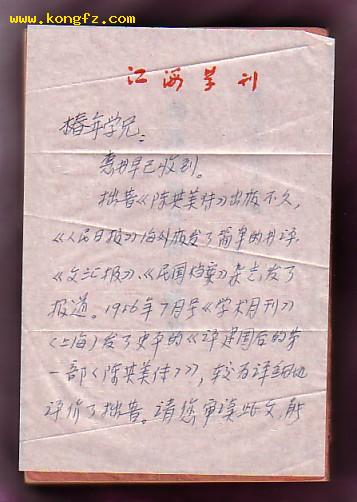 www.kongfz.com
江海学刊
椿年学兄:
惠书早已收到。
拙著《陈英美传》出版不久,
《人民日报》海外版发了简单的书评,
《文汇报》、《民国档案》杂志,发了
报道。1986年7月号《学术月刊》
(上海)发了史平的《评建国后的第
一部《陈英美传》》,较为详细地
评价了拙著。请您审读此文,能